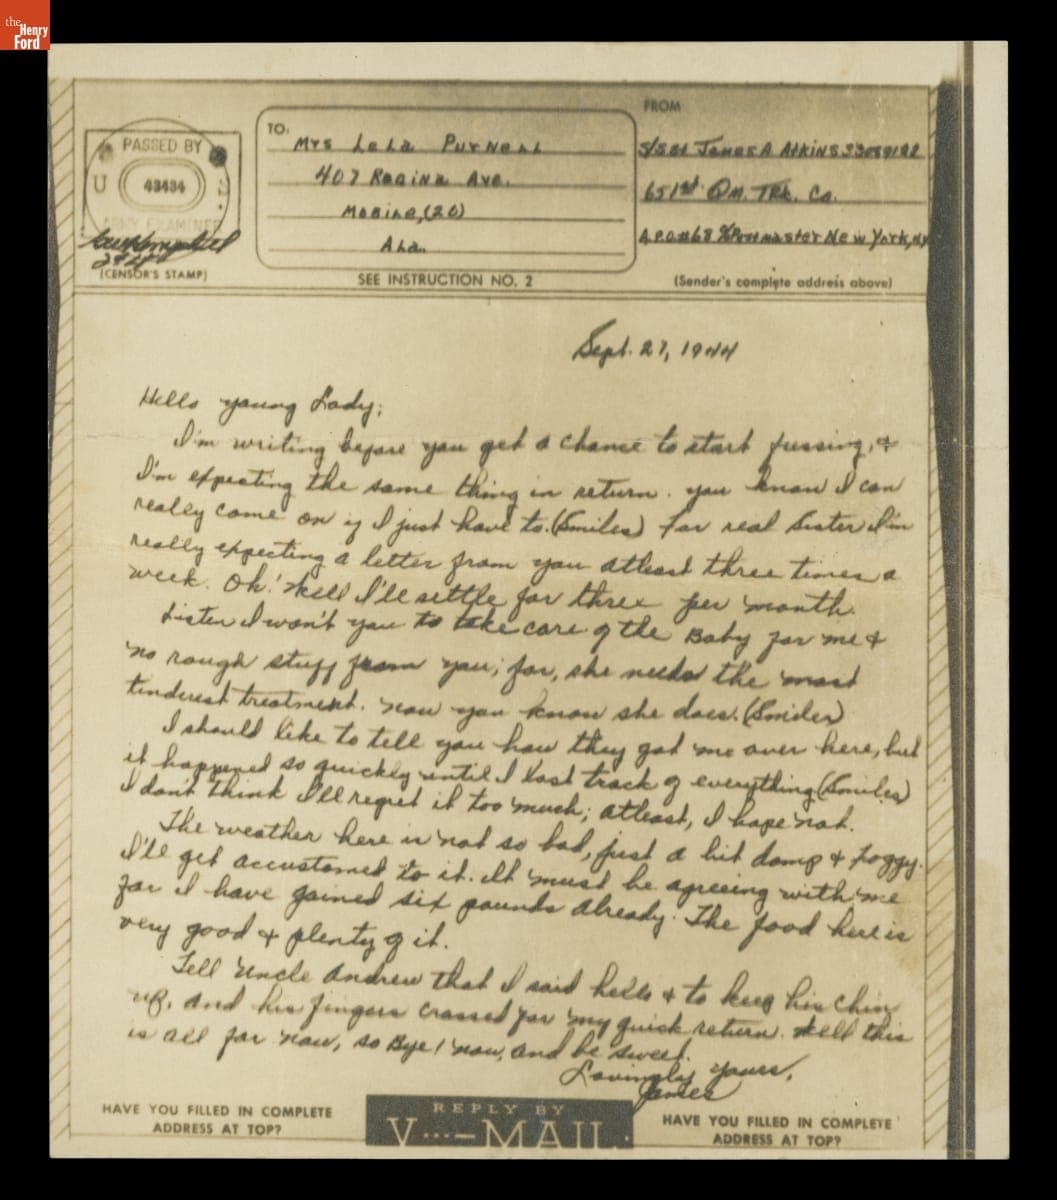 the Henry Ford
PASSED BY
U S.
43434
ARMY EXAMINER
(CENSOR'S STAMP)
TO:
Mrs Lela Purnell
407 Regina Ave.
Mobile, (20)
Ala.
SEE INSTRUCTION NO. 2
FROM
S/Sgt James A Atkins
651st Qm. Trk. Co.
A.P.O.#68 %Postmaster New York, NY
(Sender's complete address above)
Sept. 27, 1944
Hello young Lady;
I'm writing before you get a chance to start fussing, &
I'm expecting the same thing in return. you know I can
really come on if I just have to. (Smiles) For real Sister I'm
really expecting a letter from you atleast three times a
week. Oh! Well I'll settle for three per month.
Sister I won't you to take care of the Baby for me &
no rough stuff from you; for, she needs the most
tinderest treatment. now you know she does. (Smiles)
I should like to tell you how they got me over here, but
it happened so quickly until I lost track of everything (Smiles)
I don't think I'll regret it too much; atleast, I hope not.
The weather here is not so bad, just a bit damp & foggy.
I'll get accustomed to it. It must be agreeing with me
for I have gained six pounds already. The food here is
very good & plenty of it.
Tell Uncle Andrew that I said hello & to keep his chin
up, and his fingers crossed for my quick return. Well this
is all for now, so Bye! now, and be sweet.
Lovingly Yours,
James
HAVE YOU FILLED IN COMPLETE
ADDRESS AT TOP?
REPLY BY
V···—MAIL
HAVE YOU FILLED IN COMPLETE
ADDRESS AT TOP?